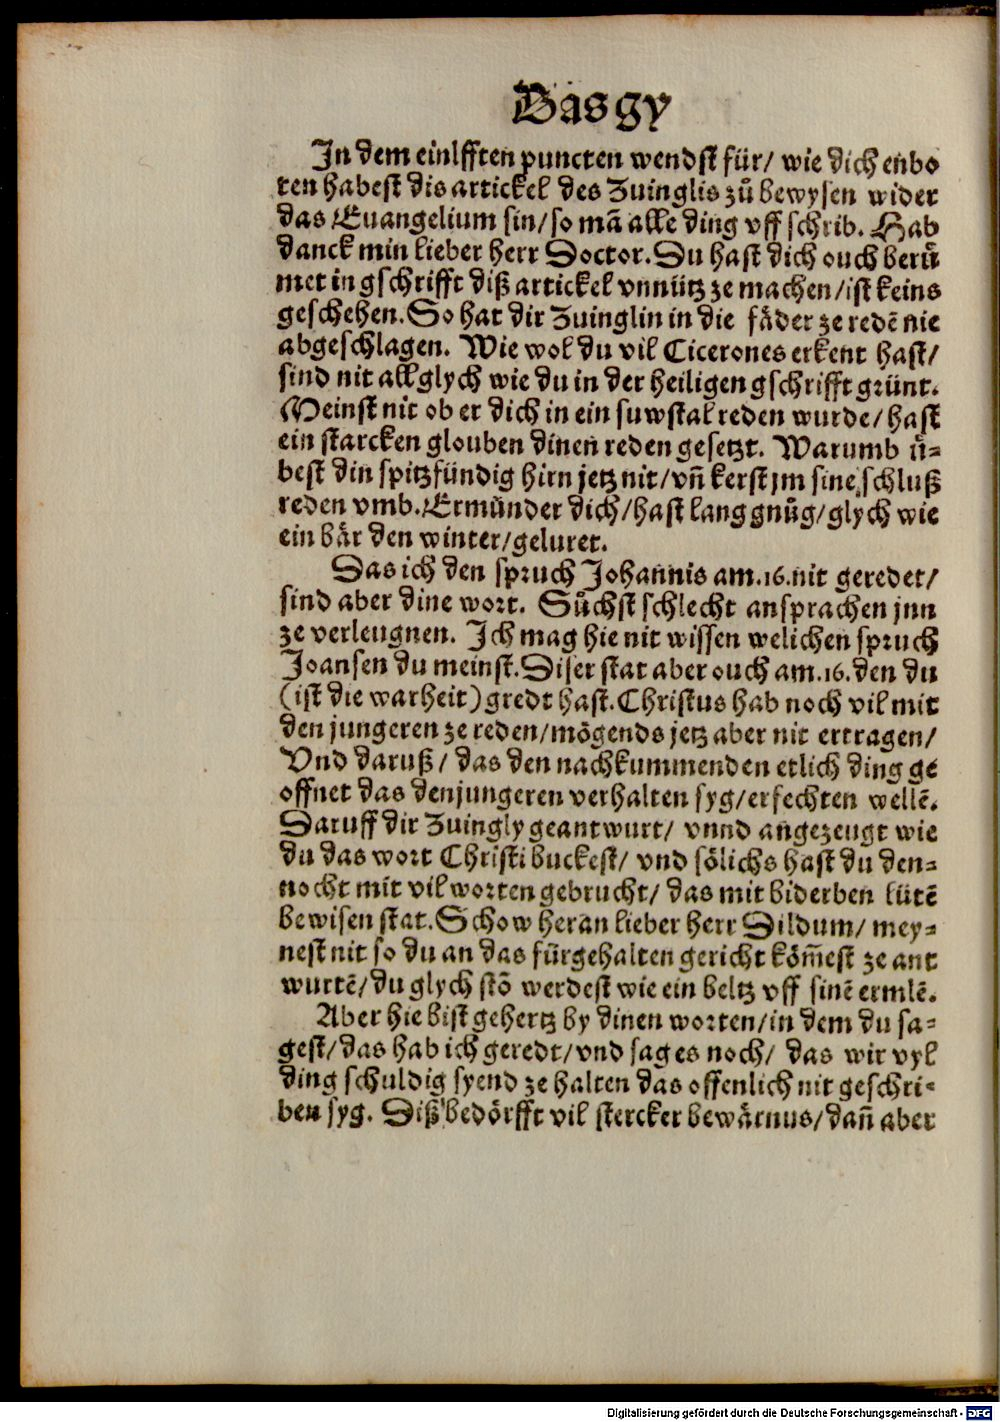 Das gy
In dem einlfften puncten wendst für/ wie dich enbo
ten habest dis artickel des Zuinglis zů bewysen wider
das Euangelium sin/so mā alle ding vff schrib. Hab
danck min lieber herr Doctor. Du hast dich ouch berů
met in gschrifft diß artickel vnnütz ze machen/ist keins
geschehen. So hat dir Zuinglin in die fäder ze redē nie
abgeschlagen. Wie wol du vil Cicerones erkent hast/
sind nit all glych wie du in der heiligen gschrifft grünt.
Meinst nit ob er dich in ein suwstal reden wurde/hast
ein starcken glouben dinen reden gesetzt. Warumb ů-
best din spitzfündig hirn jetz nit/vn̄ kerst jm sine schluß
reden vmb. Ermůnder dich/hast lang gnůg/glych wie
ein bär den winter/geluret.
Das ich den spruch Johannis am .16. nit geredet/
sind aber dine wort. Sůchst schlecht ansprachen jnn
ze verleugnen. Ich mag hie nit wissen welichen spruch
Joansen du meinst. Diser stat aber ouch am .16. den du
(ist die warheit) gredt hast. Christus hab noch vil mit
den jungeren ze reden/mögends jetz aber nit ertragen/
Vnd daruß/ das den nachkummenden etlich ding ge
offnet das den jungeren verhalten syg/erfechten wellē.
Daruff dir Zuingly geantwurt/ vnnd angezeugt wie
du das wort Christi buckest/ vnd sölichs hast du den-
nocht mit vil worten gebrucht/ das mit biderben lütē
bewisen stat. Schow heran lieber herr Dildum/ mey-
nest nit so du an das fürgehalten gericht köm̄est ze ant
wurtē/du glych stō werdest wie ein beltz vff sinē ermlē.
Aber hie bist gehertz by dinen worten/in dem du sa-
gest/das hab ich geredt/vnd sag es noch/ das wir vyl
ding schuldig syend ze halten das offenlich nit geschri-
ben syg. Diß bedörfft vil stercker bewärnus/dan̄ aber
Digitalisierung gefördert durch die Deutsche Forschungsgemeinschaft - DFG